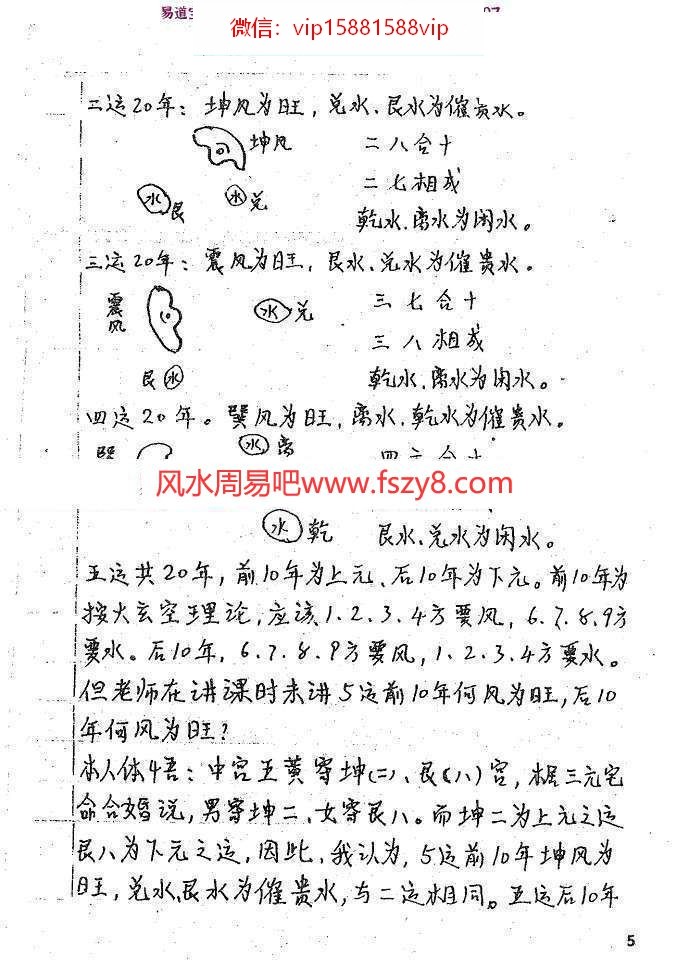 易道
微信：vip15881588vip
二运20年：坤风为旺，兑水、艮水为催贵水。
坤风 二八合十
水艮 水兑 二七相成
乾水、离水为闲水。
三运20年：震风为旺，艮水、兑水为催贵水。
震风 水兑 三七合十
三八相成
艮水 乾水、离水为闲水。
四运20年。巽风为旺，离水、乾水为催贵水。
水离
风水周易吧www.fszy8.com
水乾 艮水、兑水为闲水。
五运共20年，前10年为上元、后10年为下元。前10年为
按大玄空理论，应该1、2、3、4方要风，6、7、8、9方
要水。后10年，6、7、8、9方要风，1、2、3、4方要水。
但老师在讲课时未讲5运前10年何风为旺，后10
年何风为旺？
本人体悟：中宫五黄寄坤(二)、艮(八)宫，根据三元宅
命合婚说，男寄坤二、女寄艮八。而坤二为上元之运
艮八为下元之运，因此、我认为，5运前10年坤风为
旺，兑水、艮水为催贵水，与二运相同。五运后10年
5